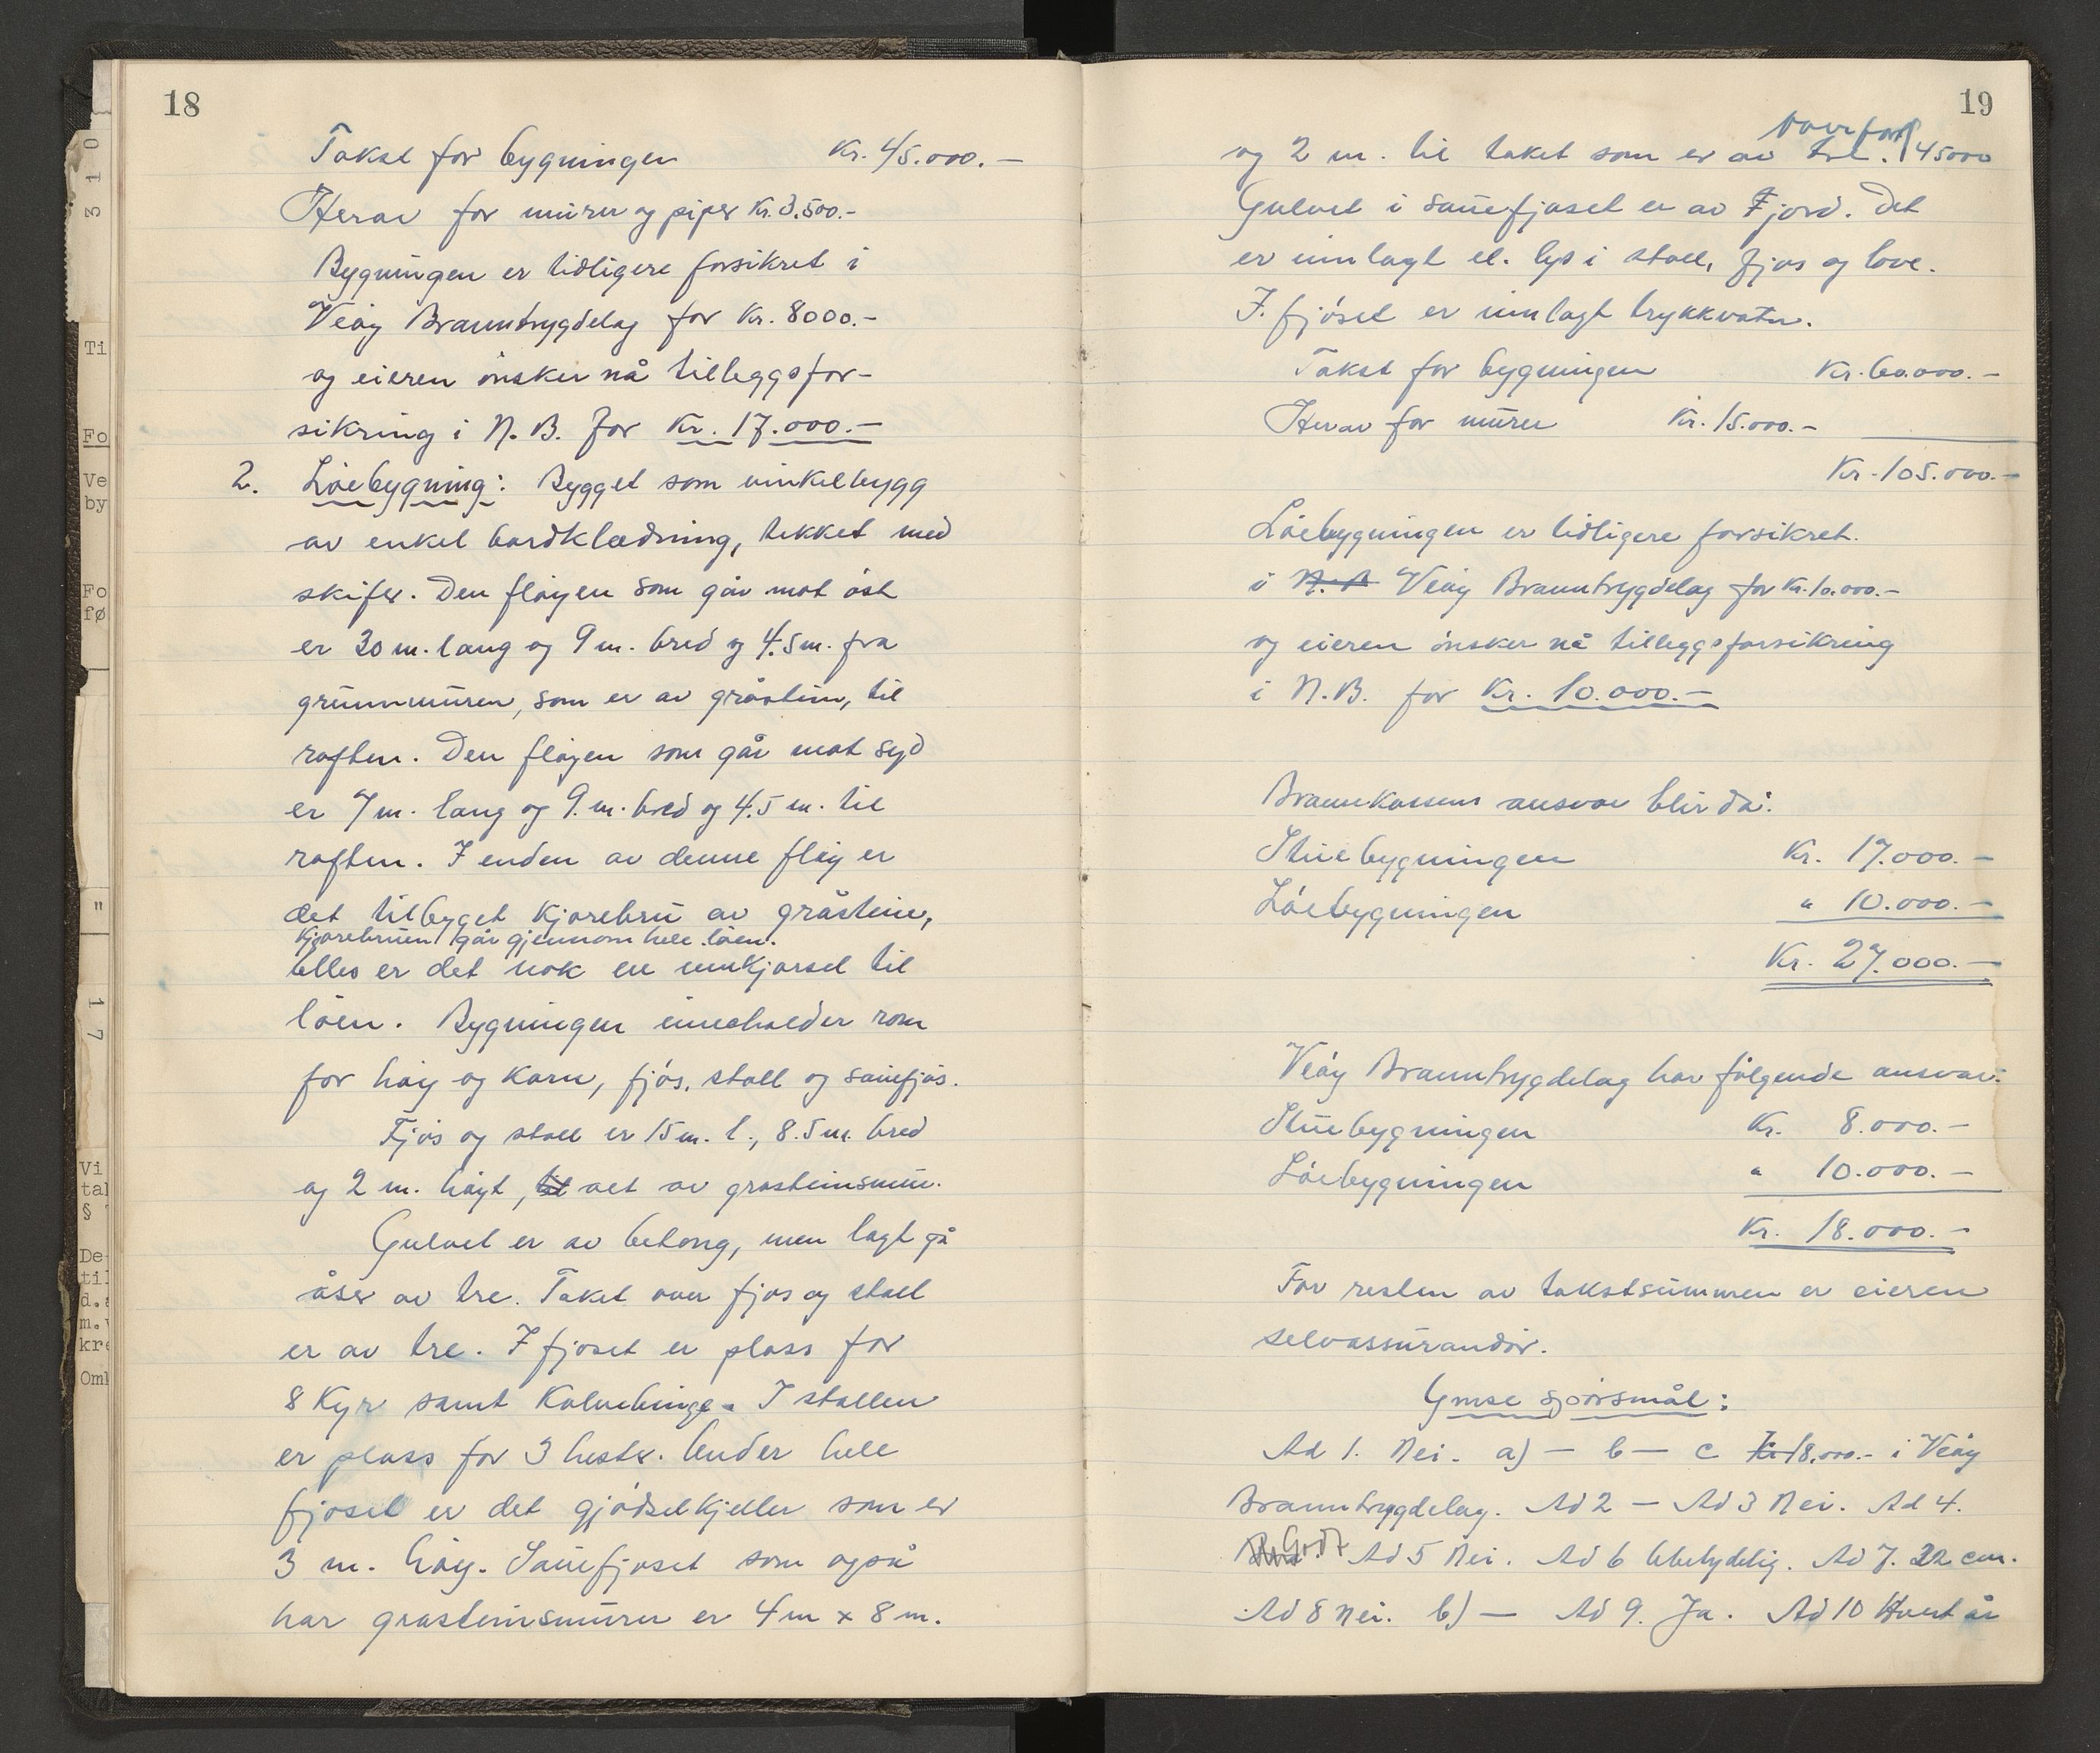 18
Takst for bygningen Kr. 45.000.-
Herav for murer og piper Kr. 3.500.-
Bygningen er tidligere forsikret i
Veøy Branntrygdelag for Kr. 8000.-
og eieren ønsker nå tilleggsfor-
sikring i N.B. for Kr. 17.000.-
2. Løebygning: Bygget som vinkelbygg
av enkel bordklædning, tekket med
skifer. Den fløyen som går mot øst
er 30 m. lang og 9 m. bred og 4.5 m. fra
grunnmuren, som er av gråstein, til
raften. Den fløyen som går mot syd
er 7 m. lang og 9. m. bred og 4.5 m. til
raften. I enden av denne fløy er
det tilbyget kjørebru av gråstein,
Kjørebruen går gjennom hele løen.
Elles er det nok en innkjørsel til
løen. Bygningen inneholder rom
for høy og korn, fjøs, stall og sauefjøs.
Fjøs og stall er 15 m. l., 8.5 m. bred
og 2 m. høyt, alt av grasteinsmur.
Gulvet er av betong, men lagt på
åser av tre. Taket over fjøs og stall
er av tre. I fjøset er plass for
8 kyr samt kalvebinge. I stallen
er plass for 3 hester. Under hele
fjøset er det gjødselkjeller som er
3 m. høy. Sauefjøset som også
har grasteinsmurer er 4 m x 8 m.
19
overført
og 2 m. til taket som er av tre. 45000
Gulvet i sauefjøset er av jord. Det
er innlagt el. lys i stall, fjøs og løve.
I fjøset er innlagt trykkvatn.
Takst for bygningen Kr. 60.000.-
Herav for murer Kr. 15.000.-
Kr. 105.000.-
Løebygningen er tidligere forsikret.
i N.B Veøy Branntrygdelag for Kr. 10.000.-
og eieren ønsker nå tilleggsforsikring
i N.B. for Kr. 10.000.-
Brannkassens ansvar blir da:
Stuebygningen Kr. 17.000.-
Løebygningen " 10.000.-
Kr. 27.000.-
Veøy Branntrygdelag har følgende ansvar:
Stuebygningen Kr. 8.000.-
Løebygningen " 10.000.-
Kr. 18.000.-
For resten av takstsummen er eieren
selvassurandør.
Ymse spørsmål:
Ad 1. Nei. a) - b - c Kr 18.000.- i Veøy
Branntrygdelag. Ad 2 - Ad 3 Nei. Ad 4.
Godt Ad 5 Nei. Ad 6 Ubetydelig. Ad 7. 22 cm.
Ad 8 Nei. b) - Ad 9. Ja. Ad 10 Hvert år
0
3 1
Ti
Fo
Ve
by
Fo
fø
"
1 7
Vi
tal
§
De
til
d.
m.
kre
Oml